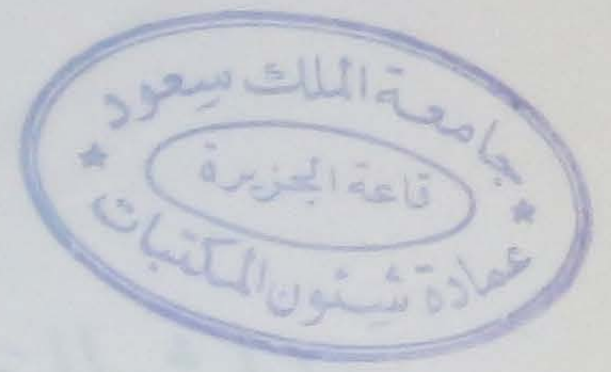 جامعة الملك سعود
قاعة الجزيرة
عمادة شئون المكتبات